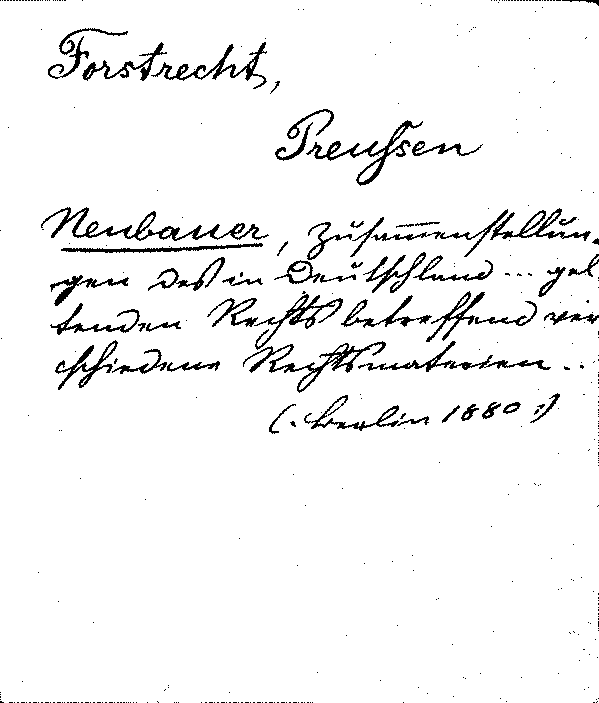 Forstrecht,
Preußen
Neubauer, Zusam̅enstellun-
gen des in Deutschland ... gel-
tenden Rechts betreffend ver
schiedene Rechtsmaterien ..
(: Berlin 1880 :)